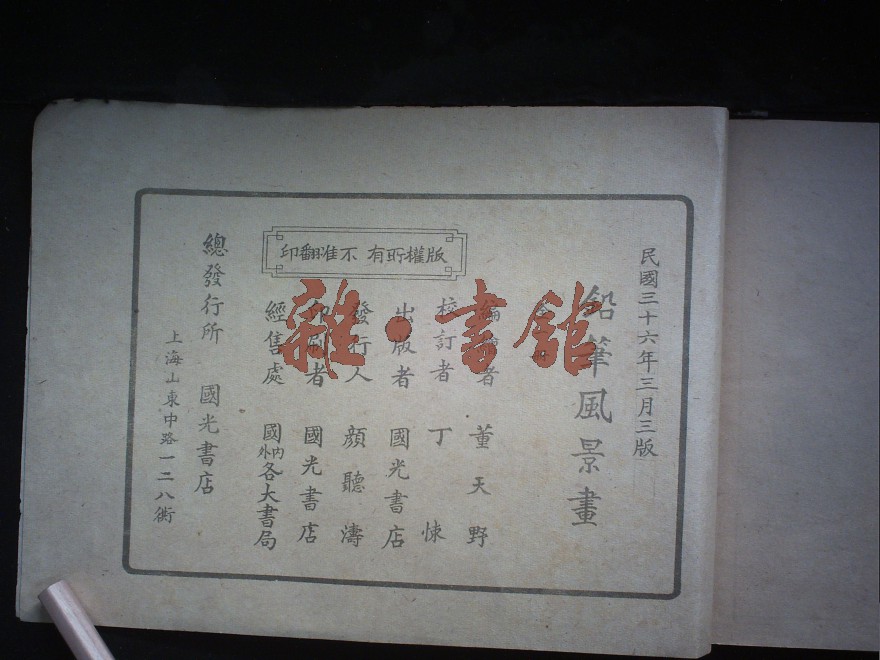 民國三十六年三月三版
鉛筆風景畫
編繪者 董天野
校訂者 丁悚
出版者 國光書店
發行人 顏聽濤
印刷者 國光書店
經售處 國內外各大書局
版權所有 不准翻印
總發行所 國光書店
上海山東中路一二八衖
雜·書館